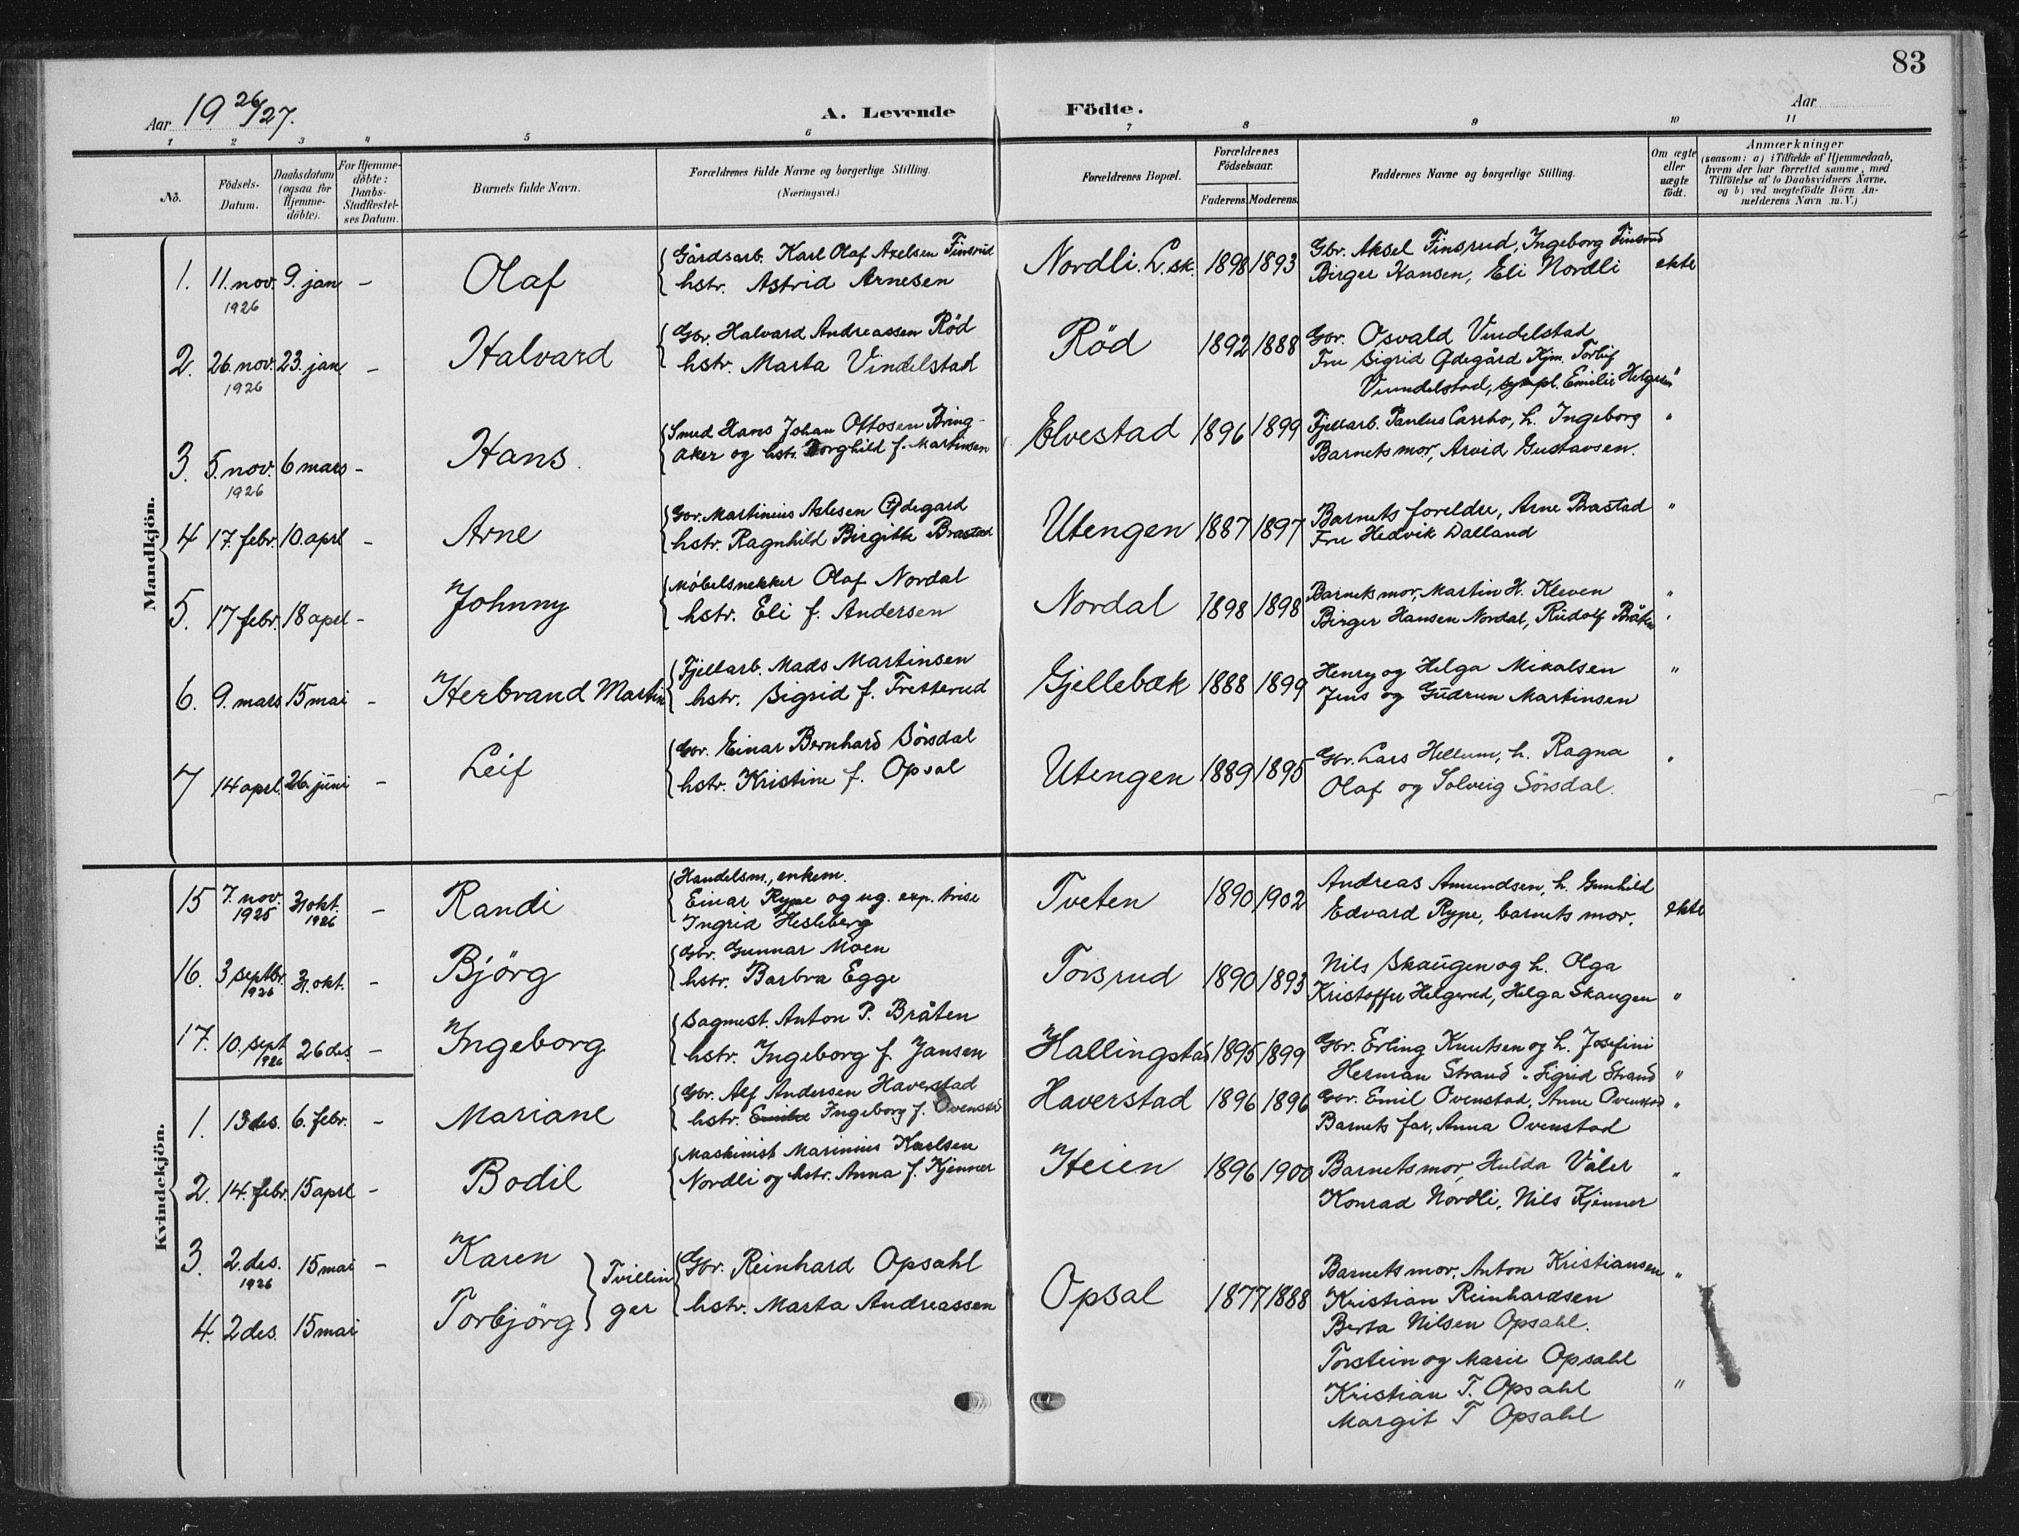 83
Aar 19 26/27.
A. Levende Födte.
Aar
1 2 3 4 5 6 7 8 9 10 11
No.
Födsels-Datum.
Daabsdatum (ogsaa for Hjemme-döbte).
For Hjemme-döbte: Daabs-Stadfæstel-ses Datum.
Barnets fulde Navn.
Forældrenes fulde Navne og borgerlige Stilling. (Næringsvei.)
Forældrenes Bopæl.
Forældrenes Födselsaar.
Faderens. Moderens.
Faddernes Navne og borgerlige Stilling.
Om ægte eller uægte födt.
Anmærkninger
(saasom: a) i Tilfælde af Hjemmedaab, hvem der har forrettet samme, med Tilföielse af to Daabsvidners Navne, og b) ved uægtefödte Börn An-melderens Navn m. V.)
Mandkjön.
1. 11. nov. 1926 9. jan – Olaf
Gårdsarb. Karl Olaf Axelsen Finsrud
hstr. Astrid Arnesen
Nordli. L.sk. 1898 1893
Gbr. Aksel Finsrud, Ingeborg Finsrud
Birger Hansen, Eli Nordli ekte
2. 26. nov. 1926 23. jan – Halvard
Gbr. Halvard Andreassen Röd
hstr. Marta Vindelstad
Röd 1892 1888
Gbr. Osvald Vindelstad
Fru Sigrid Ødegård Kjm. Torleif
Vindelstad, Emilie Helgesen "
3. 5. nov. 1926 6 mars – Hans.
Smed Hans Johan Ottosen Bring-
aker og hstr. Borghild f. Martinsen
Elvestad 1896 1899
Fjellarb. Paulus Carrho, h. Ingeborg "
Barnets mor, Arvid Gustavsen.
4 17. febr. 10. aprl – Arne
Gbr. Martinius Aslesen Ødegard
hstr. Ragnhild Birgitte Brastad
Utengen 1887 1897
Barnets foreldre, Arne Brastad "
Fru Hedvik Dalland
5. 17 febr. 18 aprl – Johnny
Møbelsnekker Olaf Nordal
hstr. Eli f. Andersen
Nordal 1898 1898
Barnets mor, Martin H. Kleven "
Birger Hansen Nordal, Rudolf Bråten
6. 9. mars 15 mai – Herbrand Martin
Fjellarb. Mads Martinsen
hstr. Sigrid f. Fretterud
Gjellebæk 1888 1899
Henry og Helga Mikalsen "
Jens og Gudrun Martinsen
7 14 aprl. 26. juni – Leif
Gbr. Einar Bernhard Sörsdal
hstr. Kristine f. Opsal
Utengen 1889 1895
Gbr. Lars Hellum, h. Ragna "
Olaf og Solveig Sörsdal.
Kvindekjön.
15 7. nov. 1925 31 okt. 1926 – Randi
Handelsm., enkem.
Einar Rype og ug. exp. trise
Ingrid Hesleberg
Tveten 1890 1902
Andreas Amundsen, h. Gunhild
Edvard Rype, barnets mor. ekte
16. 3 septbr. 1926 31. okt. – Björg
Gbr. Gunnar Moen
hstr. Barbra Egge
Torsrud 1890 1893
Nils Skaugen og h. Olga
Kristoffer Helgerud, Helga Skaugen "
17. 10. sept 1926 26 des. – Ingeborg
Sagmest. Anton P. Bråten
hstr. Ingeborg f. Jansen
Hallingstad 1895 1899
Gbr. Erling Knutsen og h. Josefine
Herman Strand. Sigrid Strand "
1. 13 des. 6. febr. – Mariane
Gbr. Alf Andersen Haverstad
hstr. Ingeborg f. Ovenstad
Haverstad 1896 1896
Gbr. Emil Ovenstad, Anne Ovenstad "
Barnets far, Anna Ovenstad
2. 14. febr. 15 aprl – Bodil
Maskinist Marinius Karlsen
Nordli og hstr. Anna f. Kjenner
Heien 1896 1900
Barnets mor, Hulda Våler "
Konrad Nordli, Nils Kjenner
3. 2. des. 1926 15 mai – Karen
4. 2 des. 15 mai Torbjörg
Tvillin
ger
Gbr. Reinhard Opsahl
hstr. Marta Andreassen
Opsal 1877 1888
Barnets mor, Anton Kristiansen "
Kristian Reinhardsen
Berta Nilsen Opsahl.
Torstein og Marie Opsahl
Kristian T. Opsahl "
Margit T Opsahl